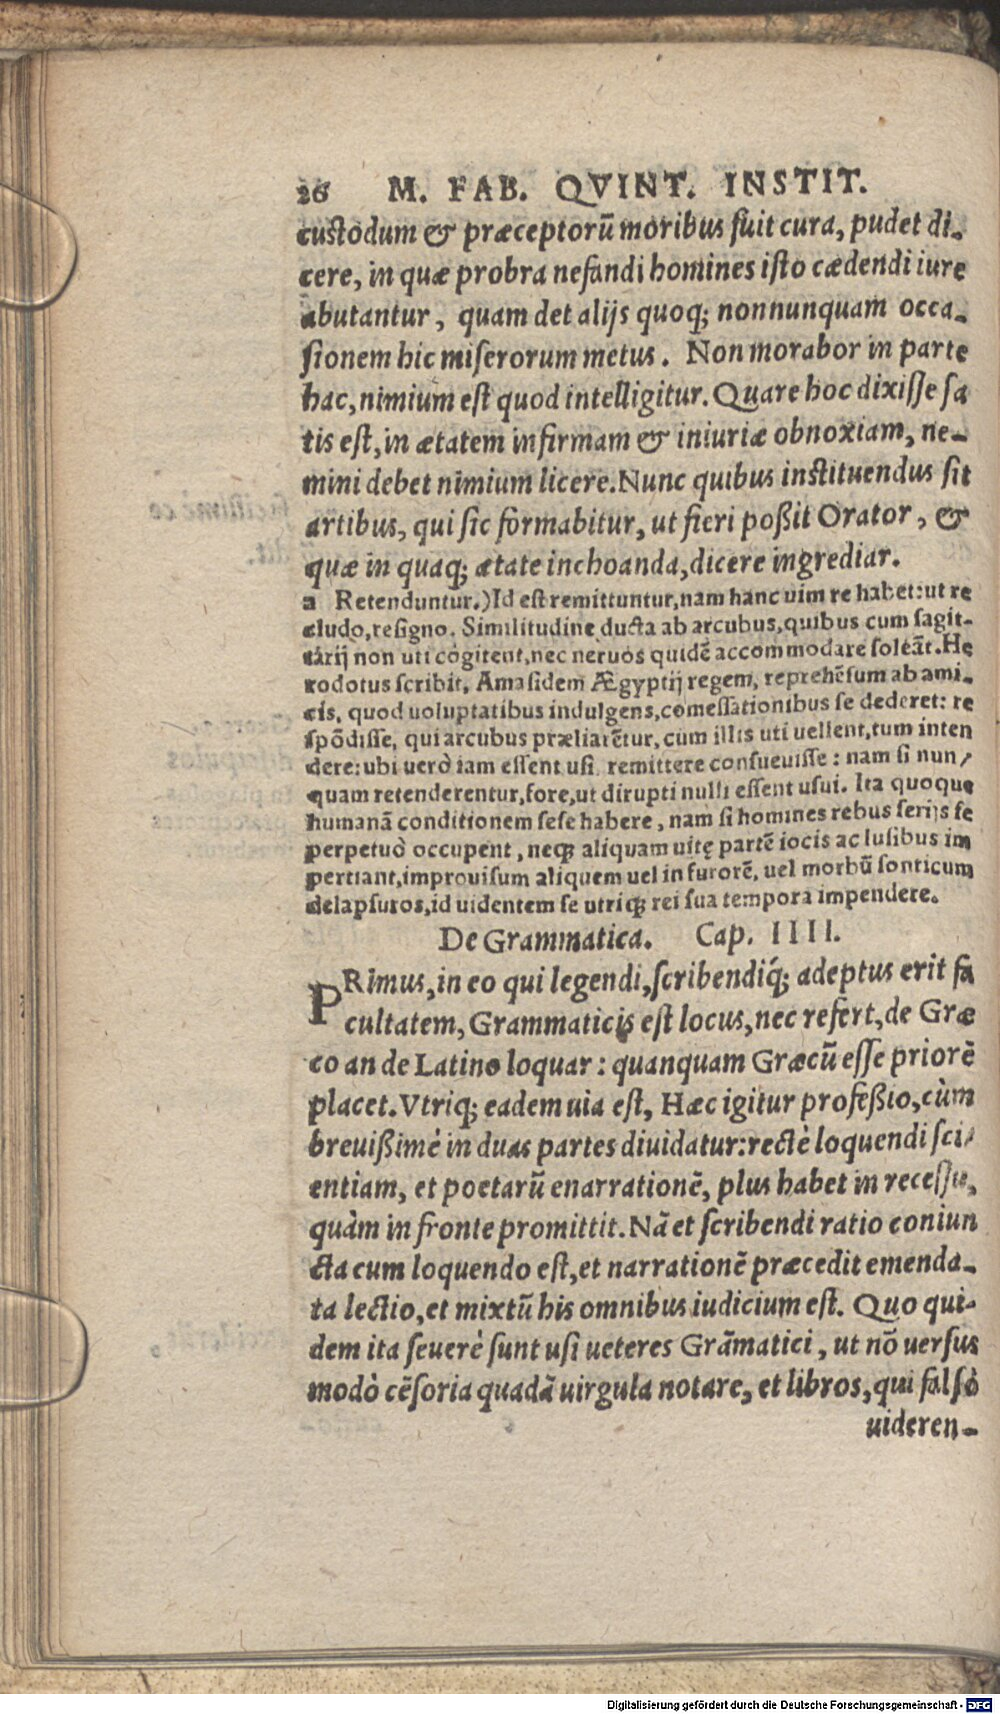 26 M. FAB. QVINT. INSTIT.
custodum & præceptorū moribus fuit cura, pudet di-
cere, in quæ probra nefandi homines isto cædendi iure
abutantur, quam det alijs quoq; nonnunquam occa-
sionem hic miserorum metus. Non morabor in parte
hac, nimium est quod intelligitur. Quare hoc dixisse sa
tis est, in ætatem infirmam & iniuriæ obnoxiam, ne-
mini debet nimium licere. Nunc quibus instituendus sit
artibus, qui sic formabitur, ut fieri poßit Orator, &
quæ in quaq; ætate inchoanda, dicere ingrediar.
a Retenduntur.) Id est remittuntur, nam hanc uim re habet: ut re
cludo, resigno. Similitudine ducta ab arcubus, quibus cum sagit-
tarij non uti cogitent, nec neruos quidē accommodare soleāt. He
rodotus scribit, Amasidem Ægyptij regem, reprehēsum ab ami-
cis, quod uoluptatibus indulgens, comessationibus se dederet: re
spōdisse, qui arcubus præliarētur, cum illis uti uellent, tum inten
dere: ubi uerò iam essent usi, remittere consueuisse: nam si nun/
quam retenderentur, fore, ut dirupti nulli essent usui. Ita quoque
humanā conditionem sese habere, nam si homines rebus serijs se
perpetuò occupent, neq; aliquam uitę partē iocis ac lusibus im
pertiant, improuisum aliquem uel in furorē, uel morbū sonticum
delapsuros, id uidentem se utriq; rei sua tempora impendere.
De Grammatica. Cap. IIII.
PRimus, in eo qui legendi, scribendiq́; adeptus erit fa
cultatem, Grammaticis est locus, nec refert, de Græ
co an de Latino loquar: quanquam Græcū esse priorē
placet. Vtriq; eadem uia est, Hæc igitur profeßio, cùm
breuißimè in duas partes diuidatur: rectè loquendi sci/
entiam, et poetarū enarrationē, plus habet in recessu,
quàm in fronte promittit. Nā et scribendi ratio coniun
cta cum loquendo est, et narrationē præcedit emenda-
ta lectio, et mixtū his omnibus iudicium est. Quo qui-
dem ita seuerè sunt usi ueteres Grāmatici, ut nō uersus
modò cēsoria quadā uirgula notare, et libros, qui falsò
uideren-
Digitalisierung gefördert durch die Deutsche Forschungsgemeinschaft - DFG